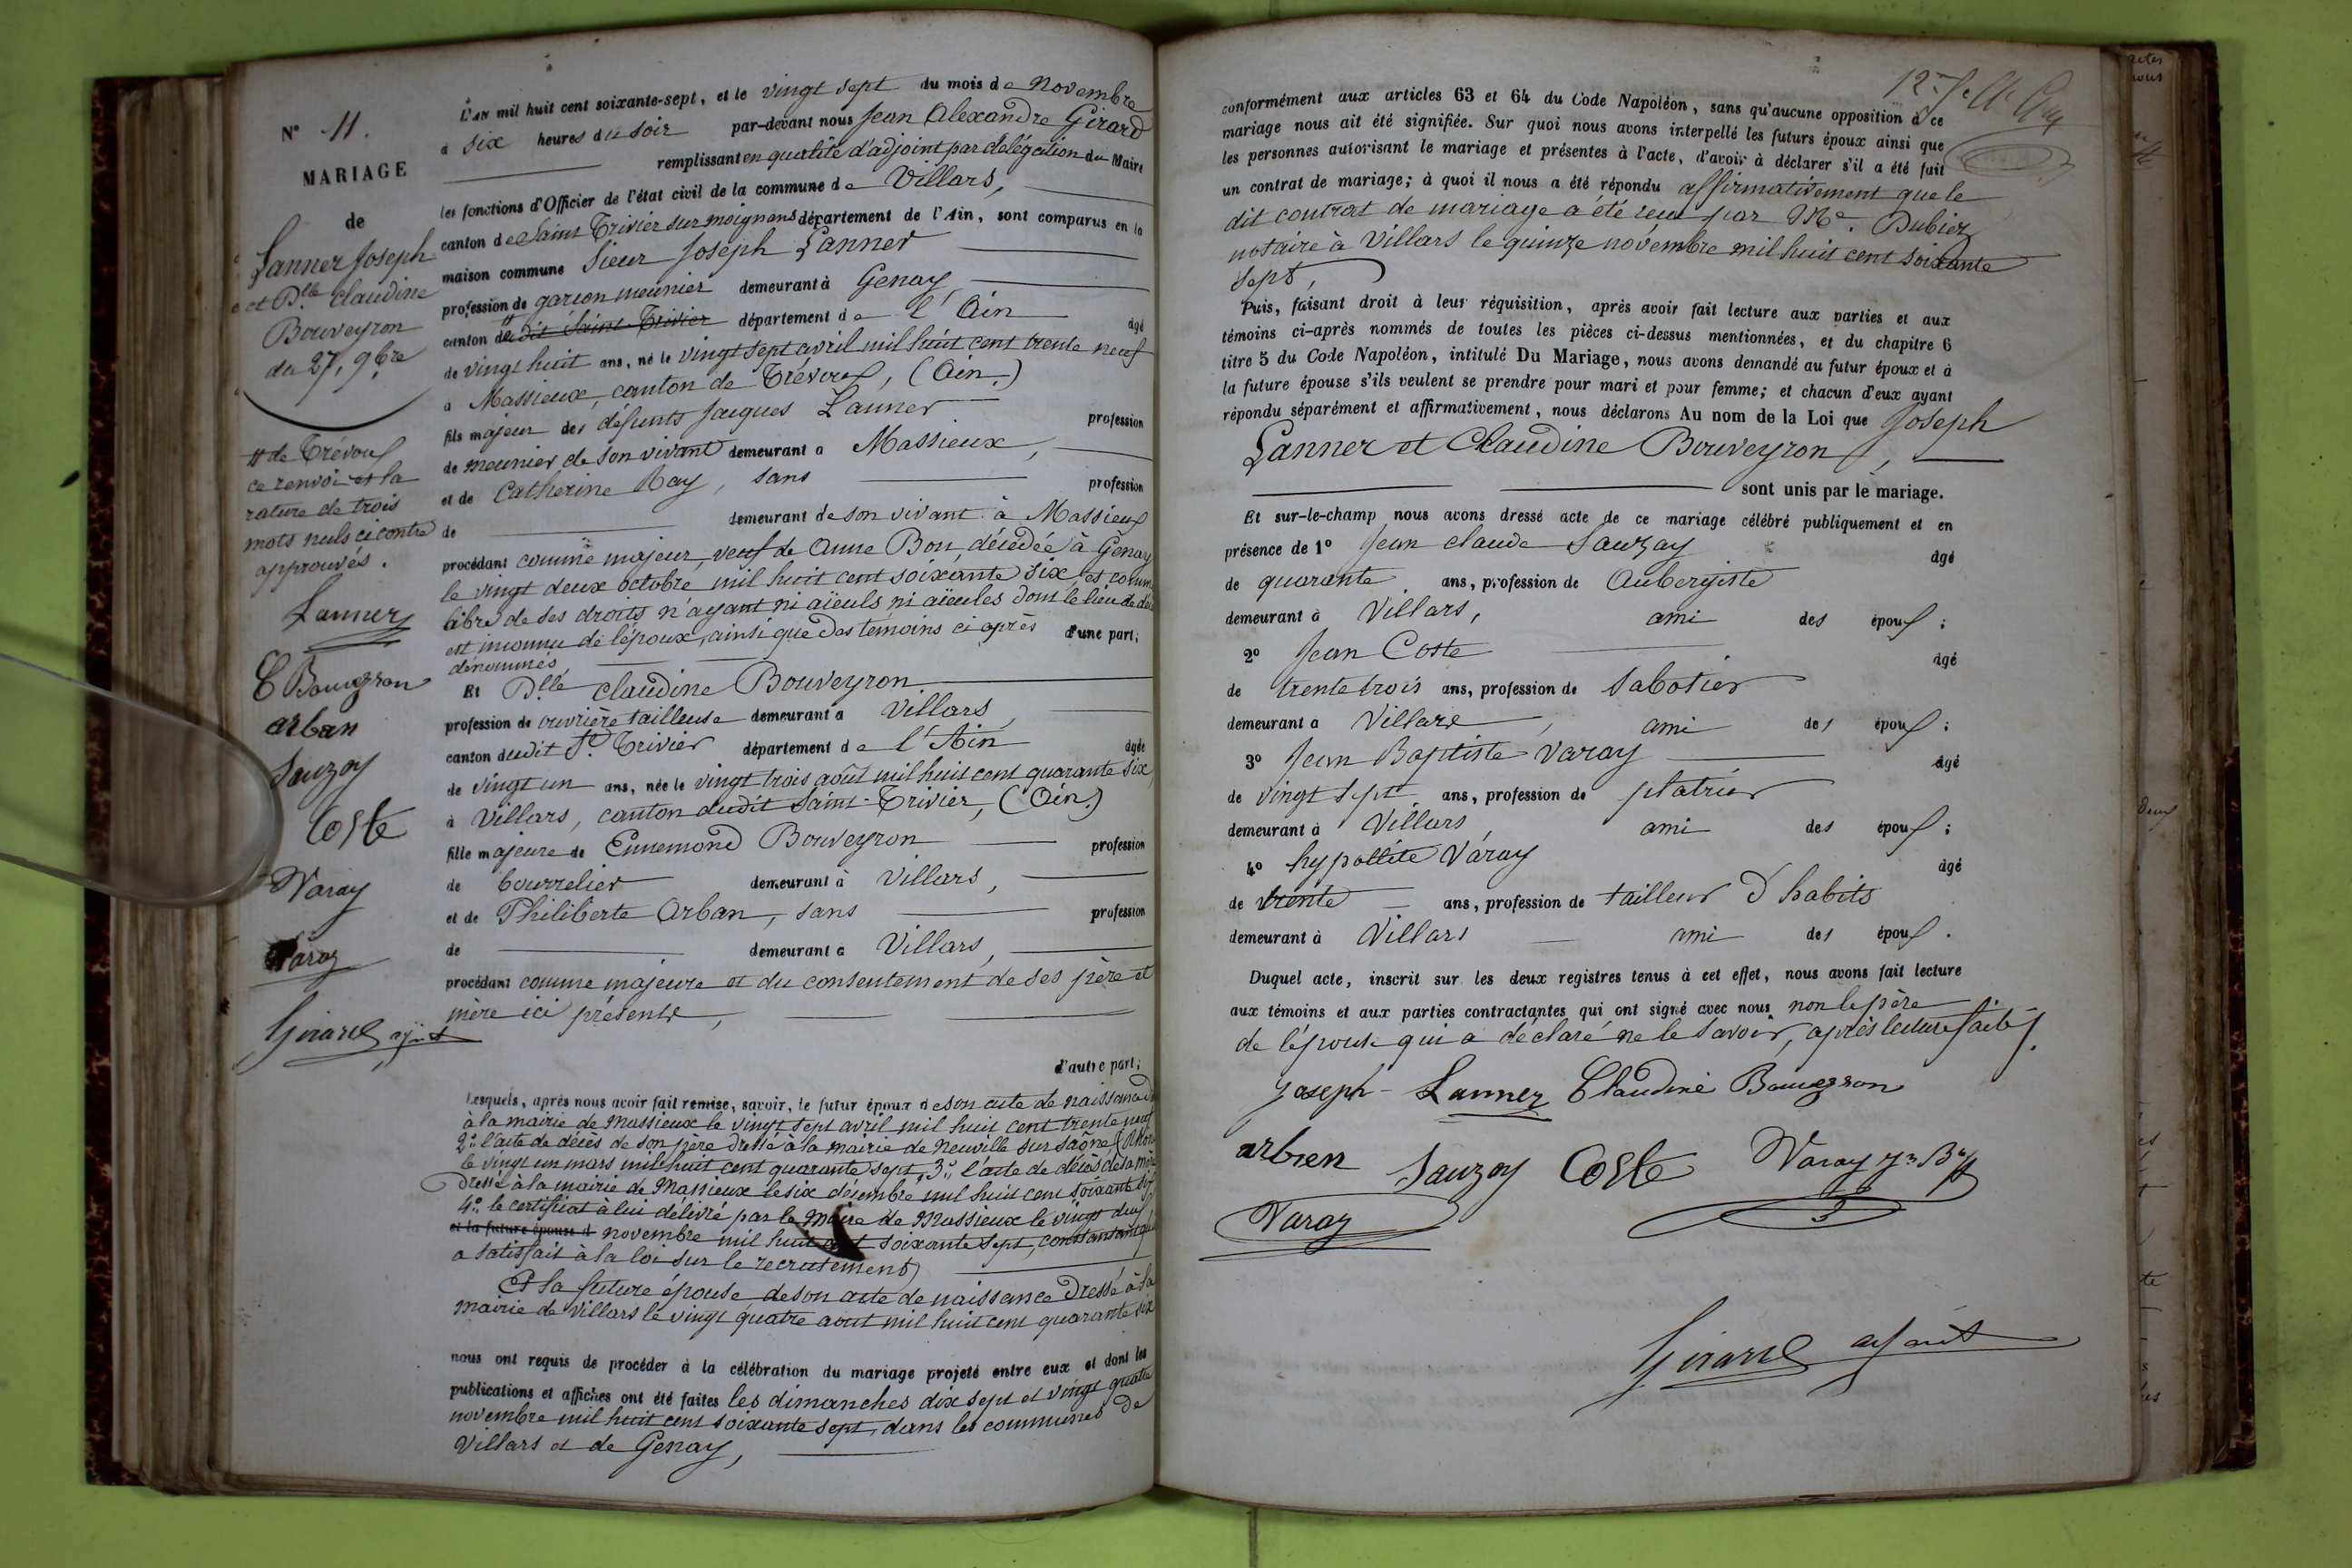 N° 11.
MARIAGE
de
Lanner Joseph
et Dlle Claudine
Bouveyron
du 27, 9bre
# de Trévoux
ce renvoi et la
rature de trois
mots nuls ci contre
approuvés.
Lanner
C Bouveyron
arban
Sauzay
Coste
Varay
Varay
Girard ajoint
L'AN mil huit cent soixante-sept, et le vingt sept du mois de Novembre
à six heures du soir par-devant nous Jean Alexandre Girard
remplissant en qualité d'adjoint par délégation du Maire
les fonctions d'Officier de l'état civil de la commune de Villars,
canton de Saint Trivier sur moignans département de l'Ain, sont comparus en la
maison commune Sieur Joseph Lanner
profession de garçon meunier demeurant à Genay
canton de # dit Saint-Trivier département de l'Ain âgé
de vingt huit ans, né le vingt sept avril mil huit cent trente neuf
à Massieux, canton de Trévoux, (Ain.)
fils majeur des défunts Jacques Lanner profession
de meunier de son vivant demeurant à Massieux,
et de Catherine Ray, sans profession
de demeurant de son vivant à Massieux
procédant comme majeur, veuf de Anne Bon, décédée à Genay
le vingt deux octobre mil huit cent soixante six, et comme
libre de ses droits n'ayant ni aïeuls ni aïeules dont le lieu de
est inconnu de l'époux, ainsi que des témoins ci après d'une part;
dénommés,
Et Dlle Claudine Bouveyron
profession de ouvrière tailleuse demeurant à Villars,
canton dudit St. Trivier département de l'Ain âgée
de vingt un ans, née le vingt trois août mil huit cent quarante six,
à Villars, canton dudit Saint-Trivier, (Ain.)
fille majeure de Ennemond Bouveyron profession
de bourrelier demeurant à Villars,
et de Philiberte Arban, sans profession
de demeurant à Villars,
procédant comme majeure et du consentement de ses père et
mère ici présents,
d'autre part;
Lesquels, après nous avoir fait remise, savoir, le futur époux de son acte de naissance
à la mairie de Massieux le vingt sept avril mil huit cent trente neuf
2° l'acte de décès de son père dressé à la mairie de Neuville sur Saône (Rhône
le vingt un mars mil huit cent quarante sept, 3° l'acte de décès de sa mère
dressé à la mairie de Massieux le six décembre mil huit cent soixante
4° le certificat à lui délivré par le Maire de Massieux le vingt deux
et la future épouse d novembre mil huit cent soixante sept, constatant qu'il
a satisfait à la loi sur le recrutement,
Et la future épouse de son acte de naissance dressé à la
mairie de Villars le vingt quatre aout mil huit cent quarante six
nous ont requis de procéder à la célébration du mariage projeté entre eux et dont les
publications et affiches ont été faites les dimanches dix sept et vingt quatre
novembre mil huit cent soixante sept, dans les communes de
Villars et de Genay,
conformément aux articles 63 et 64 du Code Napoléon, sans qu'aucune opposition à ce
mariage nous ait été signifiée. Sur quoi nous avons interpellé les futurs époux ainsi que
les personnes autorisant le mariage et présentes à l'acte, d'avoir à déclarer s'il a été fait
un contrat de mariage; à quoi il nous a été répondu affirmativement que le
dit contrat de mariage a été reçu par Me. Dubiez
notaire à Villars le quinze novembre mil huit cent soixante
sept,
Puis, faisant droit à leur réquisition, après avoir fait lecture aux parties et aux
témoins ci-après nommés de toutes les pièces ci-dessus mentionnées, et du chapitre 6
titre 5 du Code Napoléon, intitulé Du Mariage, nous avons demandé au futur époux et à
la future épouse s'ils veulent se prendre pour mari et pour femme; et chacun d'eux ayant
répondu séparément et affirmativement, nous déclarons Au nom de la Loi que Joseph
Lanner et Claudine Bouveyron,
sont unis par le mariage.
Et sur-le-champ nous avons dressé acte de ce mariage célébré publiquement et en
présence de 1° Jean Claude Sauzay âgé
de quarante ans, profession de Aubergiste
demeurant à Villars, ami des époux;
2° Jean Coste âgé
de trente trois ans, profession de Sabotier
demeurant à Villars, ami des époux;
3° Jean Baptiste Varay âgé
de vingt sept ans, profession de platrier
demeurant à Villars, ami des époux;
4° hypollite Varay âgé
de trente ans, profession de tailleur d'habits
demeurant à Villars ami des époux.
Duquel acte, inscrit sur les deux registres tenus à cet effet, nous avons fait lecture
aux témoins et aux parties contractantes qui ont signé avec nous, non le père
de l'épouse qui a déclaré ne le savoir, après lecture faite.
Joseph Lanner Claudine Bouveyron
arben Sauzay Coste Varay Jn Bte
Varay
Girard ajoint